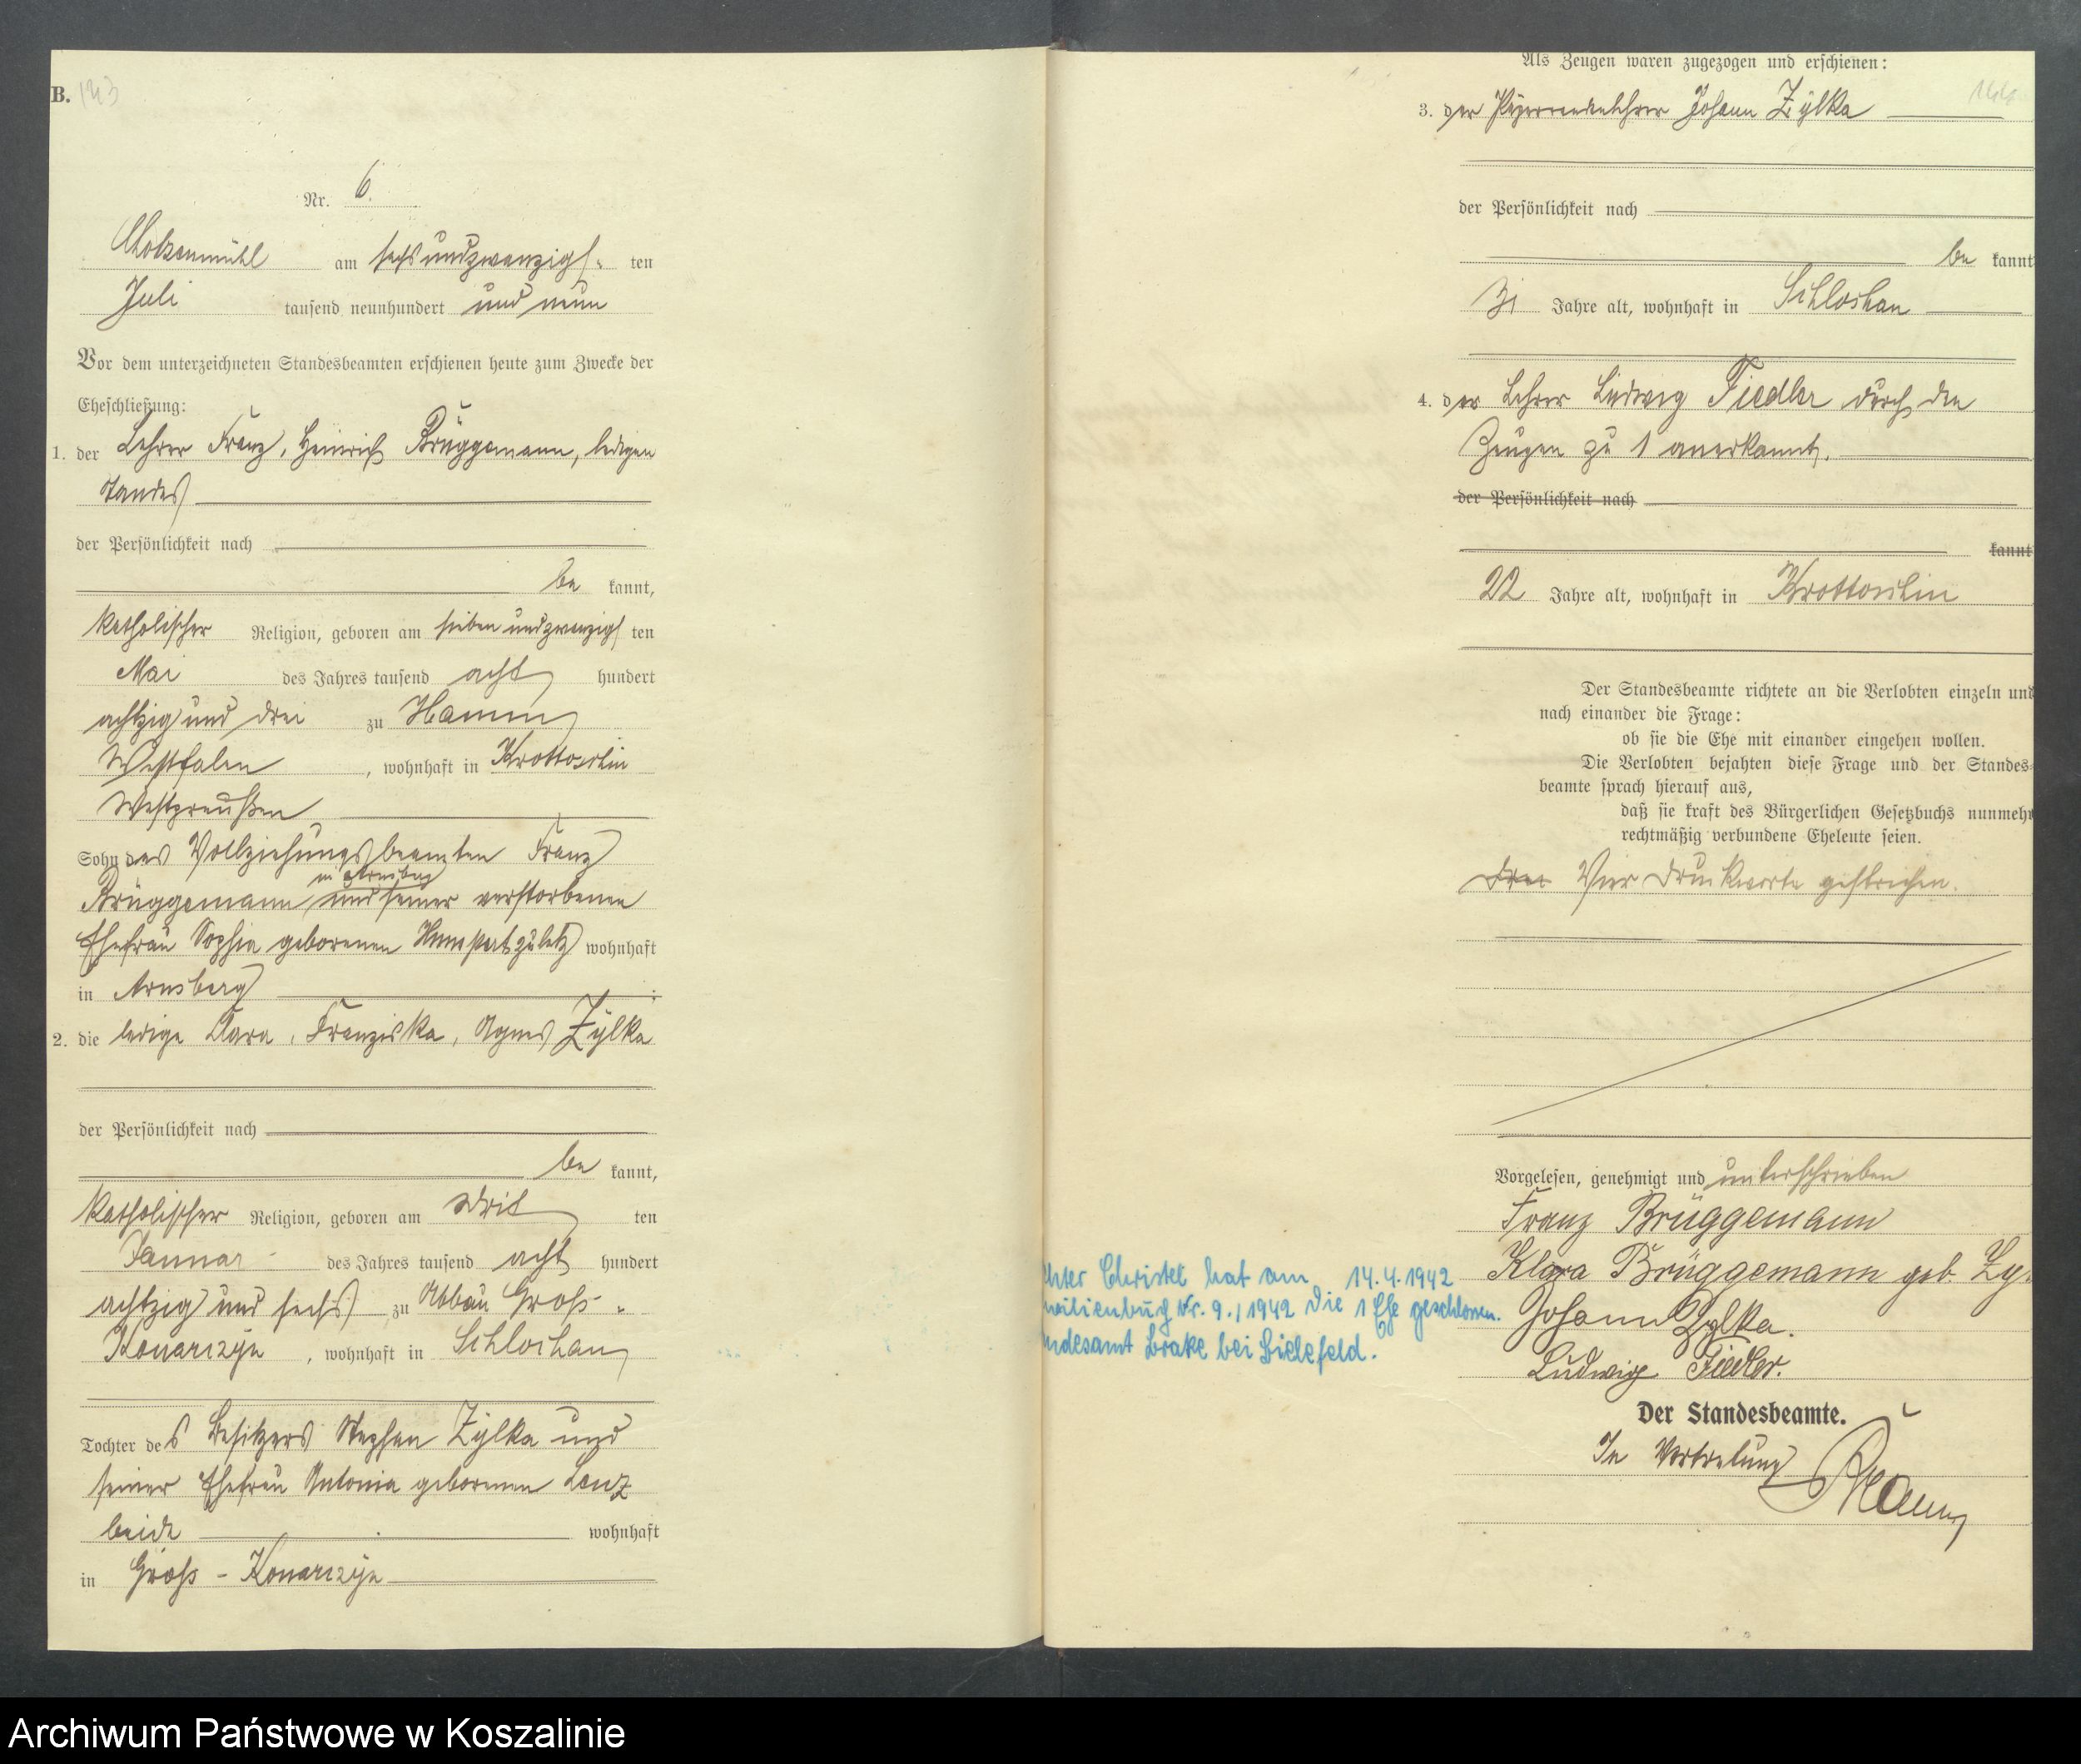 B. 143
Nr. 6.
am sechsundzwanzigs- ten
Juli tausend neunhundert und neun
Vor dem unterzeichneten Standesbeamten erschienen heute zum Zwecke der
Eheschließung:
1. der Lehrer Franz, Heinrich Brüggemann, ledigen
Standes
der Persönlichkeit nach
be kannt,
katholischer Religion, geboren am siebenundzwanzigs ten
Mai des Jahres tausend acht hundert
achtzig und drei zu Hamm
Westfalen, wohnhaft in Krottoschin
Westpreußen
Sohn des Vollziehungsbeamten Franz
in Arnsberg
Brüggemann und seiner verstorbenen
Ehefrau Sophia geborenen zuletzt wohnhaft
in Arnsberg ;
2. die ledige Clara, Franziska, Agnes Zylka
der Persönlichkeit nach
be kannt,
katholischer Religion, geboren am drit ten
Januar des Jahres tausend acht hundert
achtzig und sechs zu Abbau Gross-
Konarczyn, wohnhaft in Schlochau
Tochter des Besitzers Stephan Zylka und
seiner Ehefrau Antonia geborenen Lenz
beide wohnhaft
in Gross-Konarczyn
Als Zeugen waren zugezogen und erschienen:
144
3. der Präparandenlehrer Johann Zÿlka
der Persönlichkeit nach
be kannt
31 Jahre alt, wohnhaft in Schlochau
4. der Lehrer Ludwig Fiedler durch den
Zeugen zu 1 anerkannt.
der Persönlichkeit nach
kannt
22 Jahre alt, wohnhaft in Krottoschin
Der Standesbeamte richtete an die Verlobten einzeln und
nach einander die Frage:
ob sie die Ehe mit einander eingehen wollen.
Die Verlobten bejahten diese Frage und der Standes=
beamte sprach hierauf aus,
daß sie kraft des Bürgerlichen Gesetzbuchs nunmehr
rechtmäßig verbundene Eheleute seien.
Drei Vier Druckworte gestrichen.
Vorgelesen, genehmigt und unterschrieben
Franz Brüggemann
Klara Brüggemann geb. Zy
Johann Zylka.
Ludwig Fiedler.
Der Standesbeamte.
In Vertretung
chter Christel hat am 14.4.1942
milienbuch Nr. 9./1942 die 1 Ehe geschlossen.
ndesamt Brake bei Bielefeld.
Archiwum Państwowe w Koszalinie